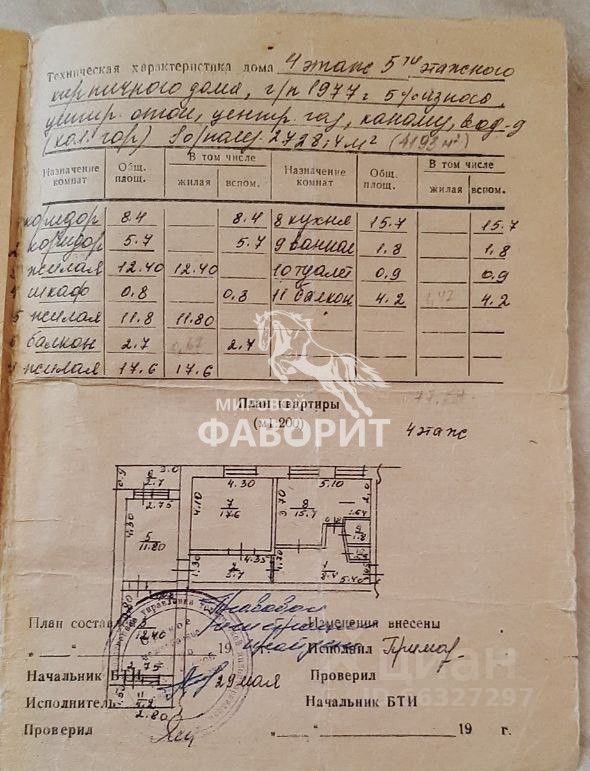 Техническая характеристика дома 4 этаж 5ти этажного
кирпичного дома, г/п 1977 г 5% износа,
центр. отоп, центр. газ, канализ, вод-д
(хол. гор) Sо/полез 2728,4 м² (4193 м²)
Назначение комнат Общ. площ. В том числе жилая вспом. Назначение комнат Общ. площ. В том числе жилая вспом.
коридор 8.4 8.4 8 кухня 15.7 15.7
2 коридор 5.7 5.7 9 ванная 1.8 1.8
3 жилая 12.40 12.40 10 туалет 0.9 0.9
4 шкаф 0.8 0.8 11 балкон 4.2 4.2
5 жилая 11.8 11.80
6 балкон 2.7 2.7
7 жилая 17.6 17.6
План квартиры
(м1:200)
МИРОВОЙ
ФАВОРИТ
4 этаж
0.9 6 2.7 3.0
2.75 4.30 5.10
4.30 5 11.80
4.10 7 17.6
3.70 8 15.7 2.0
1.64
9 1.8
1.30 2 5.7 4.35
1 8.4 5.40
12.40
2.75
11 4.2
2.80
План составлен
19
Начальник БТИ 29 мая
Исполнитель
Проверил
Изменения внесены
Исполнил
Проверил
Начальник БТИ
„ “ 19 г.
циан